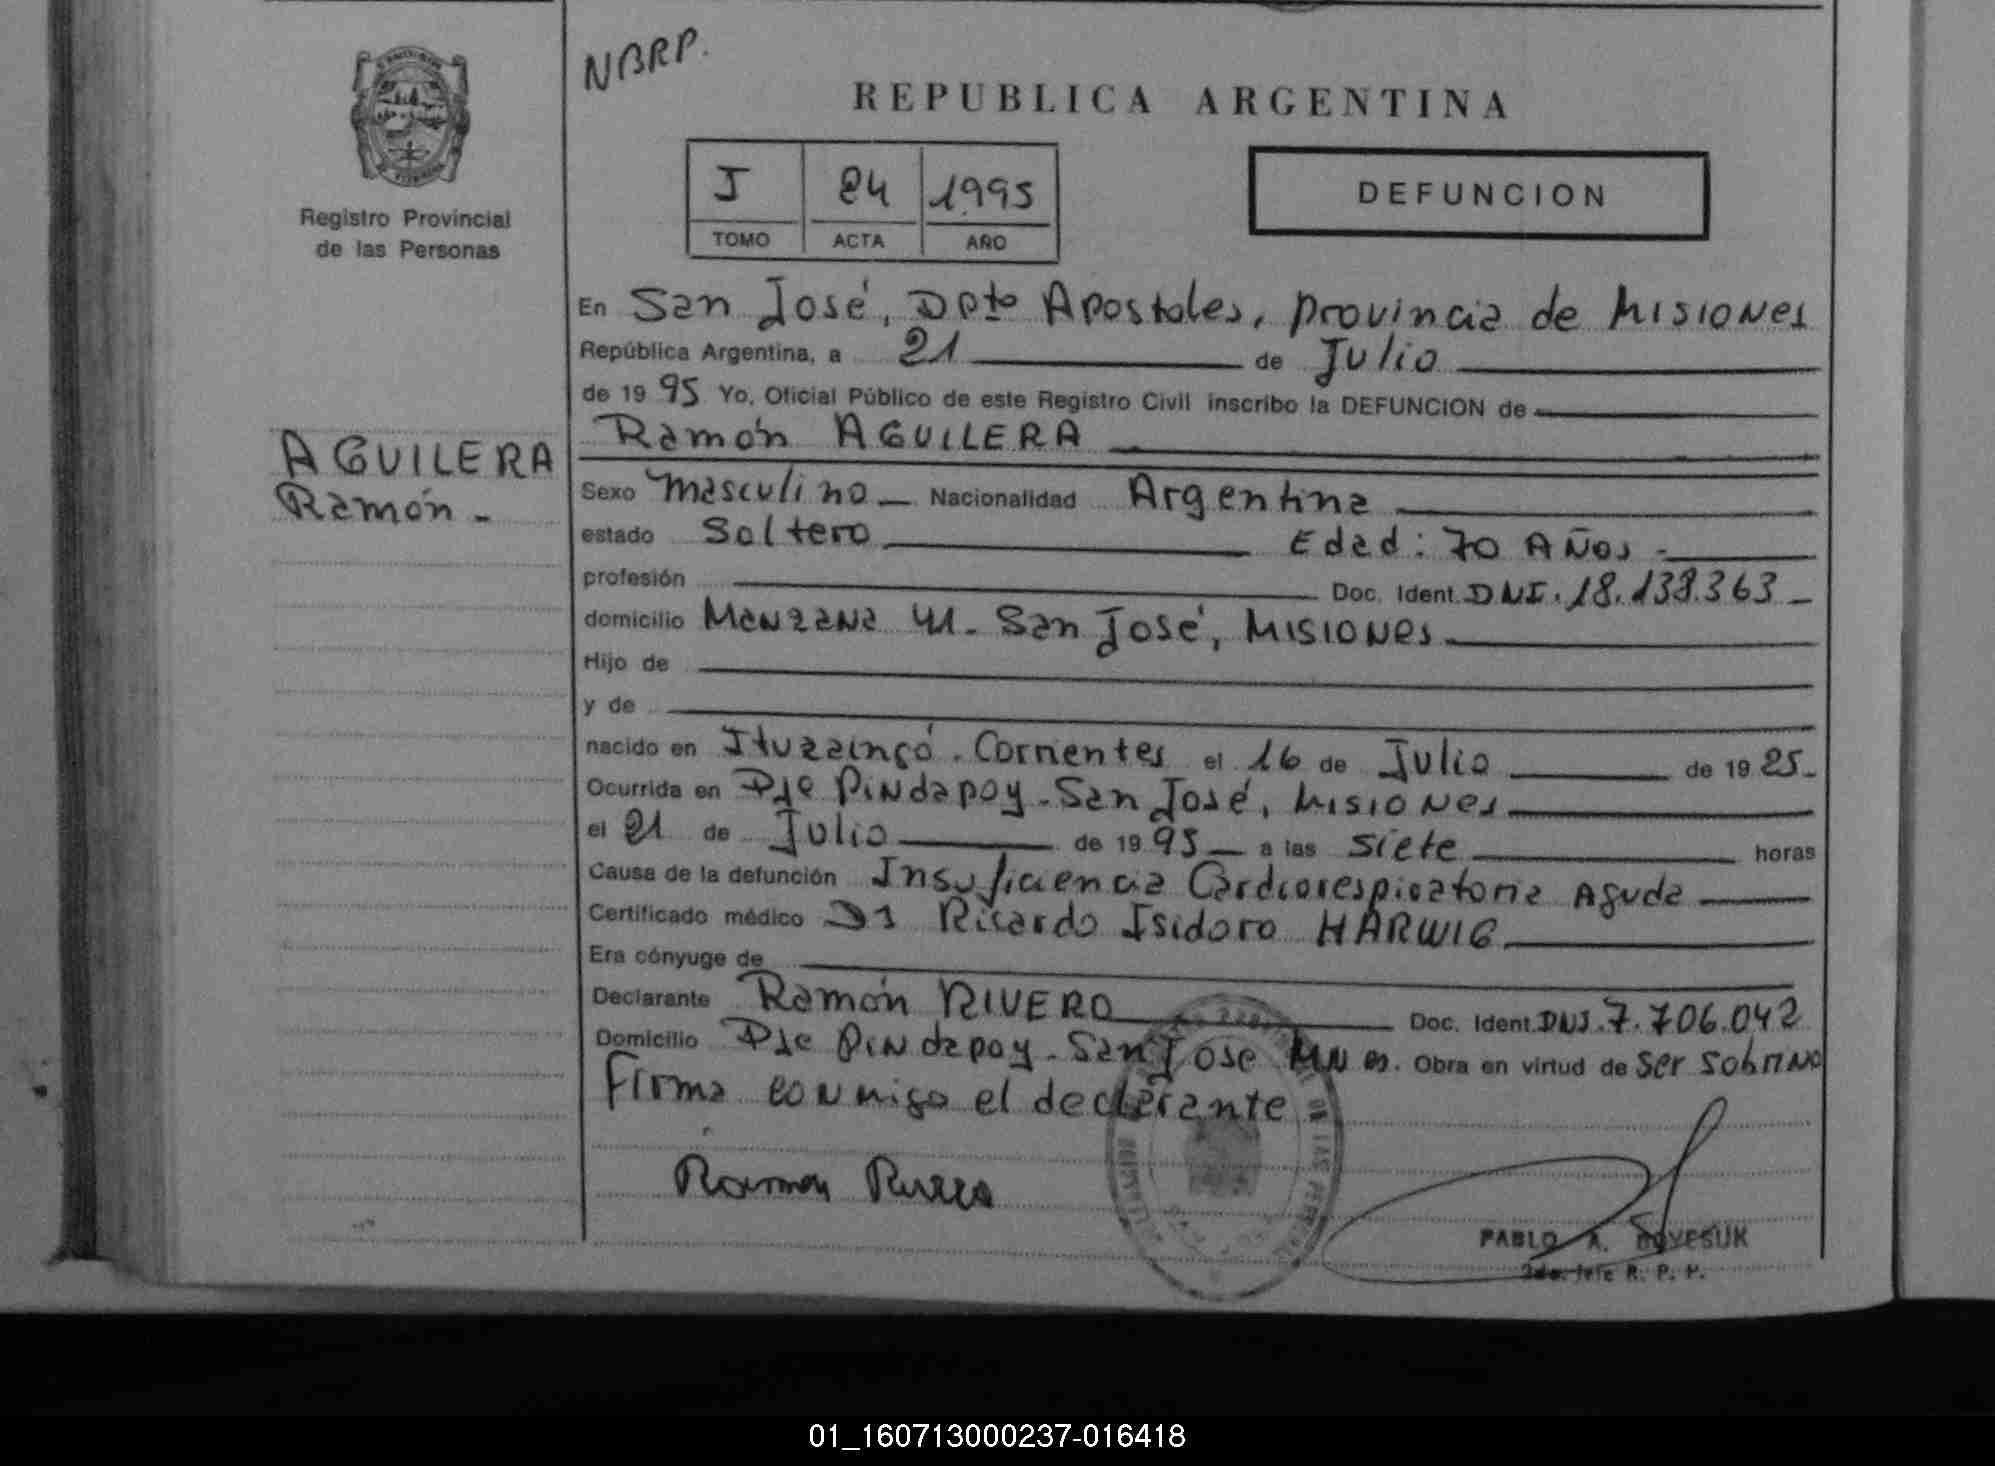 NBRP.
REPUBLICA ARGENTINA
I 24 1995
TOMO ACTA AÑO
DEFUNCION
Registro Provincial
de las Personas
AGUILERA
Ramón -
En San José, Dpto Apostoles, provincia de Misiones
República Argentina, a 21 de Julio
de 19 95 Yo, Oficial Público de este Registro Civil inscribo la DEFUNCION de
Ramón AGUILERA
Sexo Masculino Nacionalidad Argentina
estado Soltero Edad: 70 Años -
profesión Doc. Ident. DNI. 18.138.363
domicilio Manzana 41. San José, Misiones
Hijo de
y de
nacido en Ituzaingó. Corrientes el 16 de Julio de 19 25
Ocurrida en Pje Pindapoy - San José, Misiones
el 21 de Julio de 19 95 a las siete horas
Causa de la defunción Insuficiencia Cardiorespiratoria Aguda
Certificado médico Dr Ricardo Isidoro HARWIG
Era cónyuge de
Declarante Ramón RIVERO Doc. Ident. DNI. 7.706.042
Domicilio Pje Pindapoy - San Jose Mnes. Obra en virtud de ser sobrino
Firma conmigo el declarante
Ramon Rivero
PABLO A.
2do. Jefe R. P. P.
01_160713000237-016418